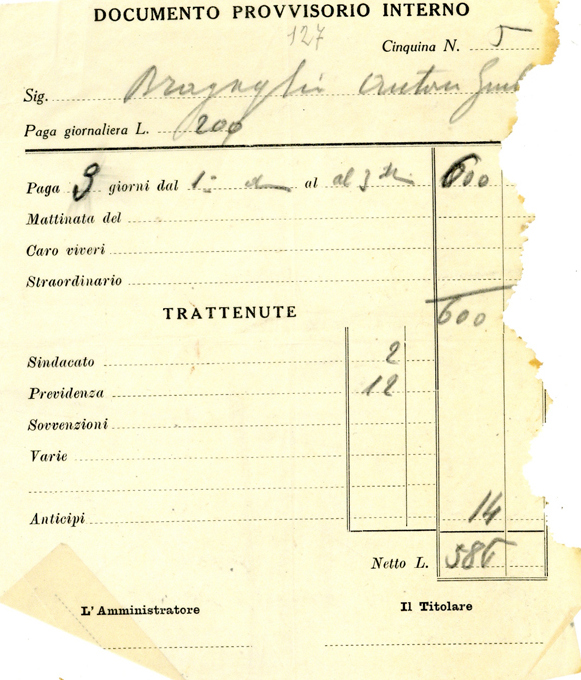 DOCUMENTO PROVVISORIO INTERNO
127
Cinquina N. 5
Sig. Bragaglia Anton Giul
Paga giornaliera L. 200
Paga 3 giorni dal 1° al al 3 600
Mattinata del
Caro viveri
Straordinario
TRATTENUTE 600
Sindacato 2
Previdenza 12
Sovvenzioni
Varie
Anticipi 14
Netto L. 586
L'Amministratore Il Titolare